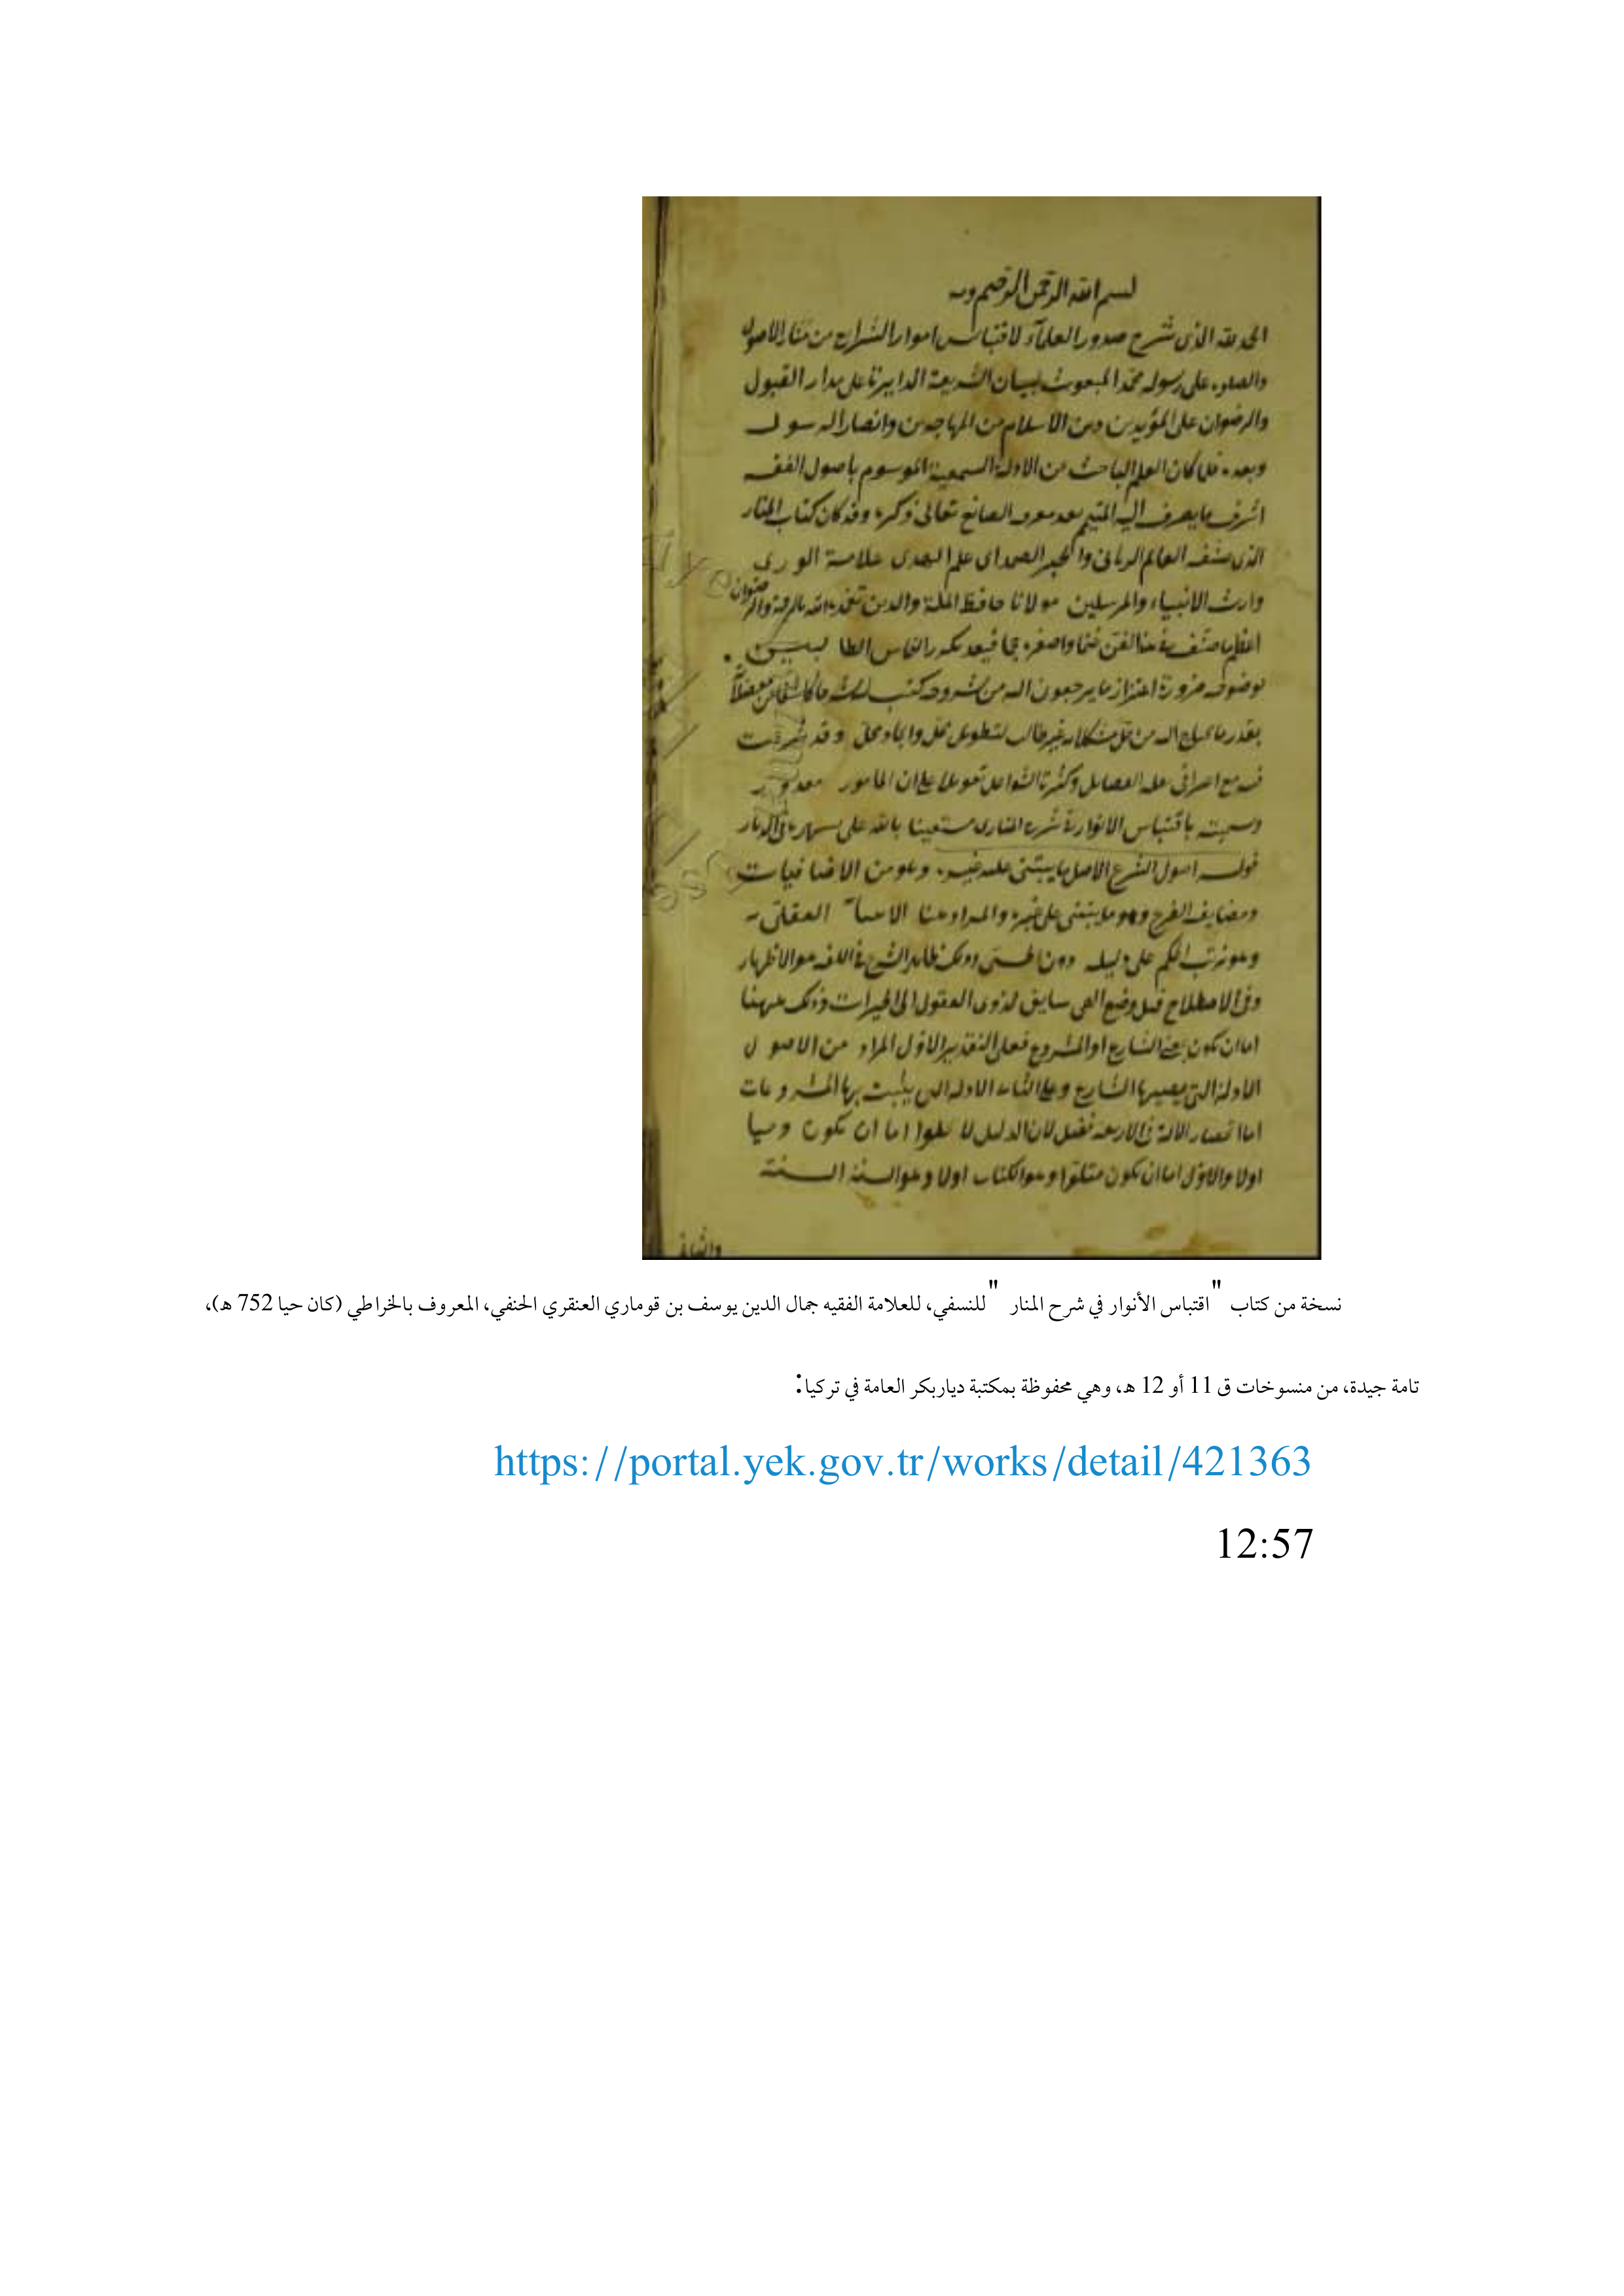 بسم الله الرحمن الرحيم وبه
الحمد لله الذي شرح صدور العلماء لاقتباس انوار الشرايع من منار الاصول
والصلوة على رسوله محمد المبعوث لبيان الشريعة الدايرة على مدار القبول
والرضوان على المؤيدين دين الاسلام من المهاجرين وانصار الرسول
وبعد فلما كان العلم الباحث عن الادلة السمعية الموسوم باصول الفقه
اشرف ما يصرف اليه بعد معرفة الصانع تعالى ذكره وقد كان كتاب المنار
الذي صنفه العالم الرباني والحبر الصمداني علم الهدى علامة الورى
وارث الانبياء والمرسلين مولانا حافظ الملة والدين تغمده الله بالرحمة والرضوان
صنف في هذا الفن حجما فبعد تكرر التماس الطالبين
من شروحه كتبت
بقدر ما يحتاج اليه من حل مشكلاته غير طالب لتطويل ممل وايجاز مخل وقد شرعت
فيه مع على ان المامور معذور
وسميته باقتباس الانوار في شرح المنار مستعينا بالله على
قوله اصول الشرع الاصل ما يبتنى عليه غيره وهو من الاضافيات
ومضايف الفرع وهو ما يبتنى على غيره والمراد هنا الابتناء العقلي
وهو ترتب الحكم على دليله دون الحسي وذلك ظاهر الشرع في اللغة هو الاظهار
وفي الاصطلاح قيل وضع الهي سايق لذوي العقول الى الخيرات وذلك ههنا
اما ان يكون بمعنى الشارع او المشروع فعلى التقدير الاول المراد من الاصول
الادلة التي نصبها الشارع وعلى الثاني الادلة التي يثبت بها المشروعات
اما انحصار الادلة في الاربعة فقيل لان الدليل لا يخلوا اما ان يكون وحيا
اولا والاول اما ان يكون متلوا وهو الكتاب اولا وهو السنة السنة
والثاني
نسخة من كتاب "اقتباس الأنوار في شرح المنار" للنسفي، للعلامة الفقيه جمال الدين يوسف بن قوماري العنقري الحنفي، المعروف بالخراطي (كان حيا 752 هـ)،
تامة جيدة، من منسوخات ق 11 أو 12 هـ، وهي محفوظة بمكتبة دياربكر العامة في تركيا:
https://portal.yek.gov.tr/works/detail/421363
12:57